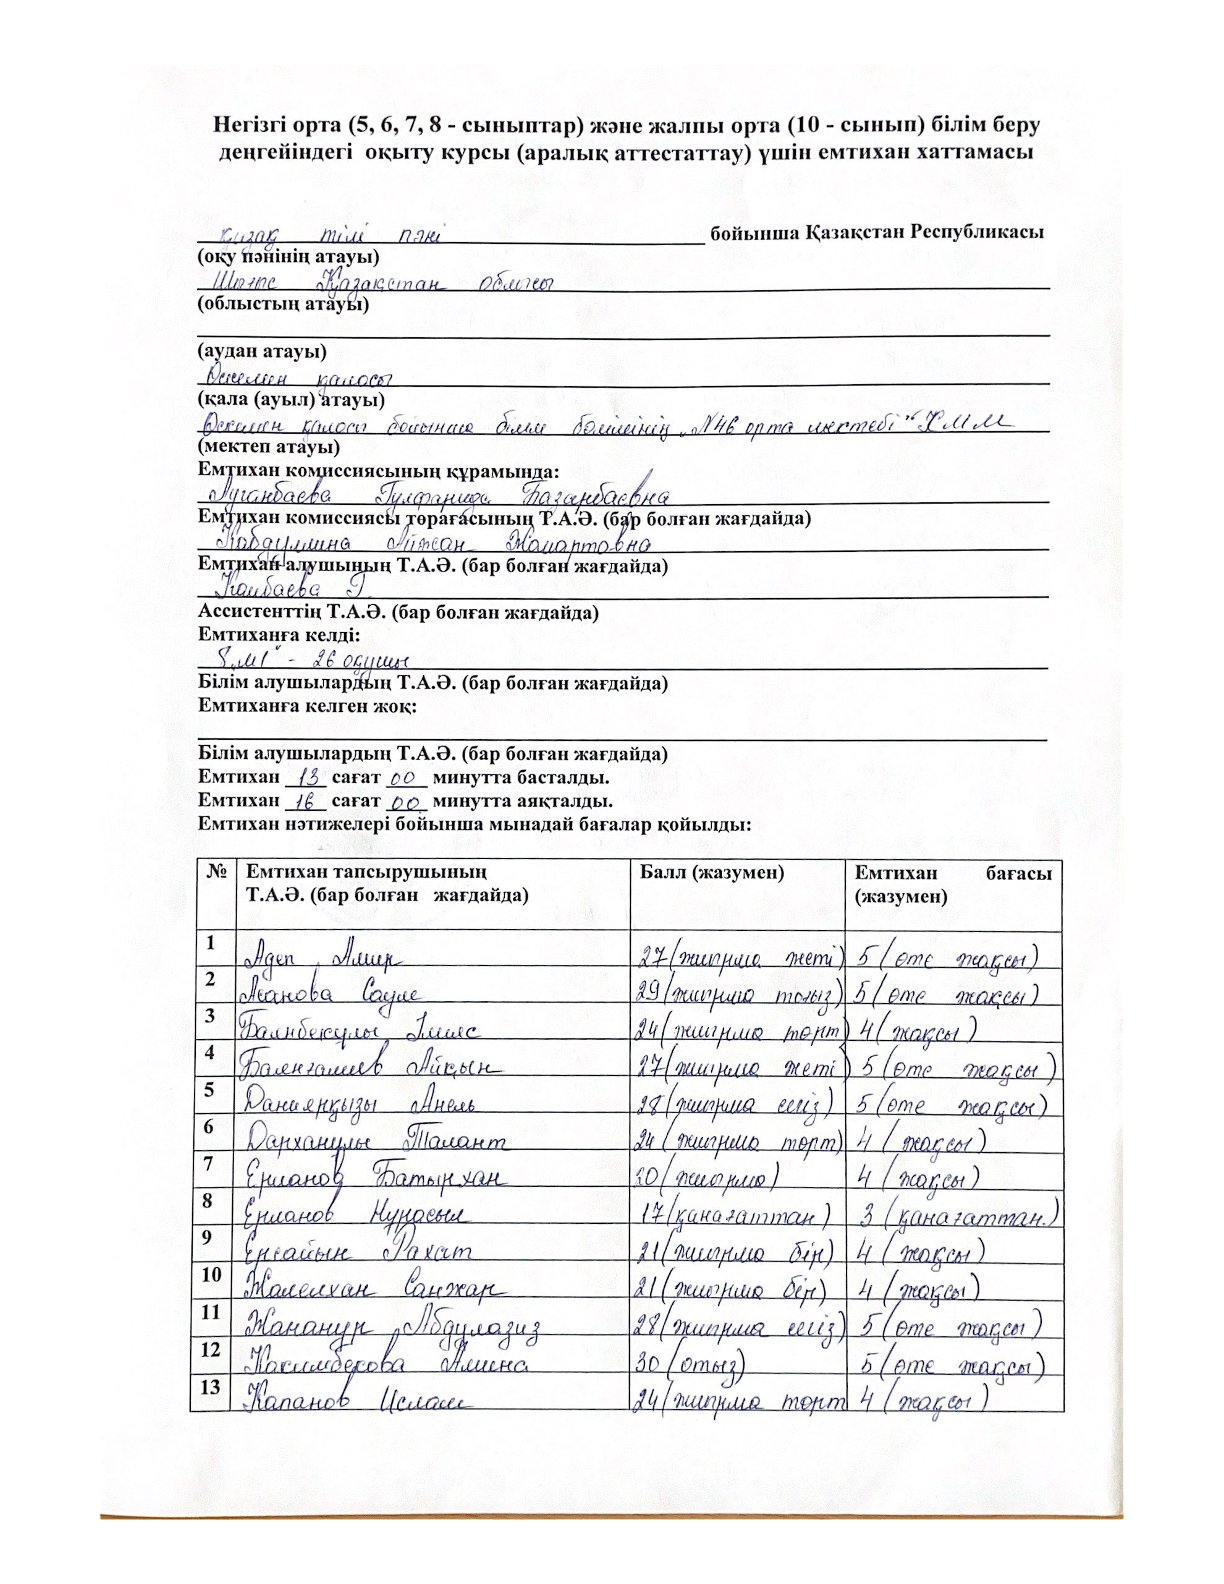 Негізгі орта (5, 6, 7, 8 - сыныптар) және жалпы орта (10 - сынып) білім беру
деңгейіндегі оқыту курсы (аралық аттестаттау) үшін емтихан хаттамасы
қазақ тілі пәні бойынша Қазақстан Республикасы
(оқу пәнінің атауы)
Шығыс Қазақстан облысы
(облыстың атауы)
(аудан атауы)
Өскемен қаласы
(қала (ауыл) атауы)
Өскемен қаласы бойынша білім бөлімінің „N46 орта мектебі" КММ
(мектеп атауы)
Емтихан комиссиясының құрамында:
Луганбаева Гулфарида Базанбаевна
Емтихан комиссиясы төрағасының Т.А.Ә. (бар болған жағдайда)
Кабдуллина Айжан Жомартовна
Емтихан алушының Т.А.Ә. (бар болған жағдайда)
Каибаева Г
Ассистенттің Т.А.Ә. (бар болған жағдайда)
Емтиханға келді:
8„М1" - 26 оқушы
Білім алушылардың Т.А.Ә. (бар болған жағдайда)
Емтиханға келген жоқ:
Білім алушылардың Т.А.Ә. (бар болған жағдайда)
Емтихан 13 сағат 00 минутта басталды.
Емтихан 16 сағат 00 минутта аяқталды.
Емтихан нәтижелері бойынша мынадай бағалар қойылды:
№ Емтихан тапсырушының Балл (жазумен) Емтихан бағасы
Т.А.Ә. (бар болған жағдайда) (жазумен)
1 Адеп Амир 27 (жиырма жеті) 5 (өте жақсы)
2 Асанова Сауле 29 (жиырма тоғыз) 5 (өте жақсы)
3 Баянбекұлы Ілияс 24 (жиырма төрт) 4 (жақсы)
4 Баянғалиев Айқын 27 (жиырма жеті) 5 (өте жақсы)
5 Даниярқызы Анель 28 (жиырма сегіз) 5 (өте жақсы)
6 Дарханұлы Талант 24 (жиырма төрт) 4 (жақсы)
7 Ерланов Батырхан 20 (жиырма) 4 (жақсы)
8 Ерланов Нұрасыл 17 (қанағаттан) 3 (қанағаттан.)
9 Ерсайын Рахат 21 (жиырма бір) 4 (жақсы)
10 Жалелхан Санжар 21 (жиырма бір) 4 (жақсы)
11 Жананұр Абдулазиз 28 (жиырма сегіз) 5 (өте жақсы)
12 Какимбекова Амина 30 (отыз) 5 (өте жақсы)
13 Капанов Ислам 24 (жиырма төрт 4 (жақсы)